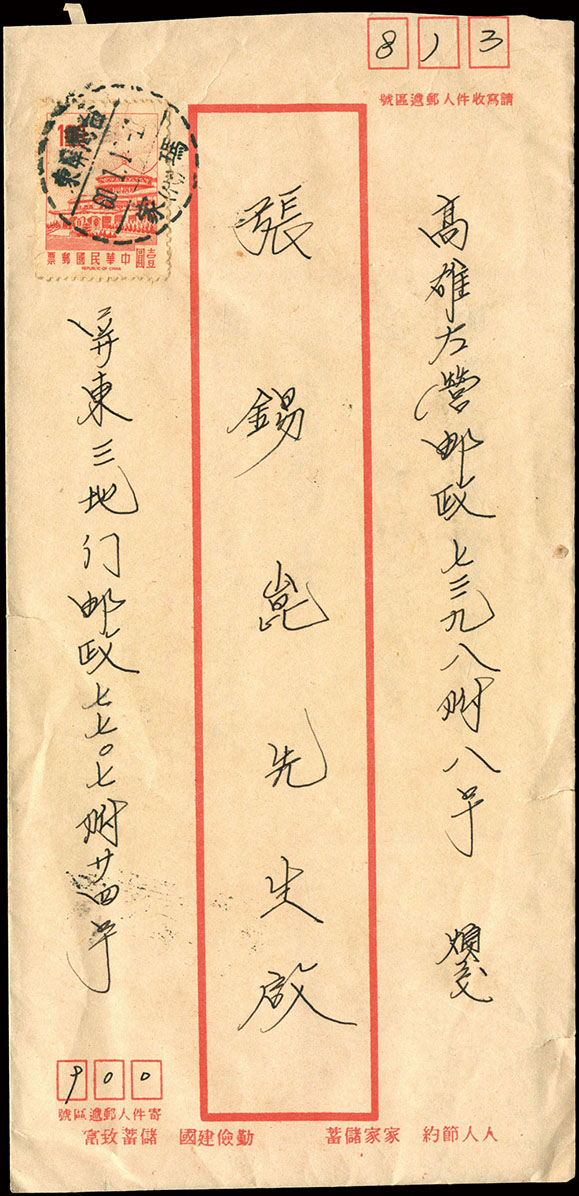 813
請寫收件人郵遞區號
高雄左營邮政七三九八附八号 煩交
張錫崑先生啟
屏東三地门邮政七七〇七附廿四号
900
寄件人郵遞區號
人人節約 家家儲蓄 勤儉建國 儲蓄致富
壹圓 中華民國郵票
REPUBLIC OF CHINA
台灣屏東
瑪家